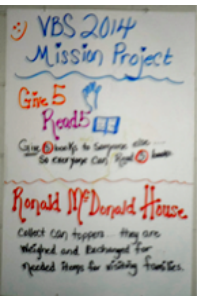 VBS 2014
Mission Project
Give 5
Read 5
Give 5 books to someone else ...
So everyone can Read 5 books
Ronald McDonald House
Collect can toppers... they are
Weighed and Exchanged for
needed items for visiting families.